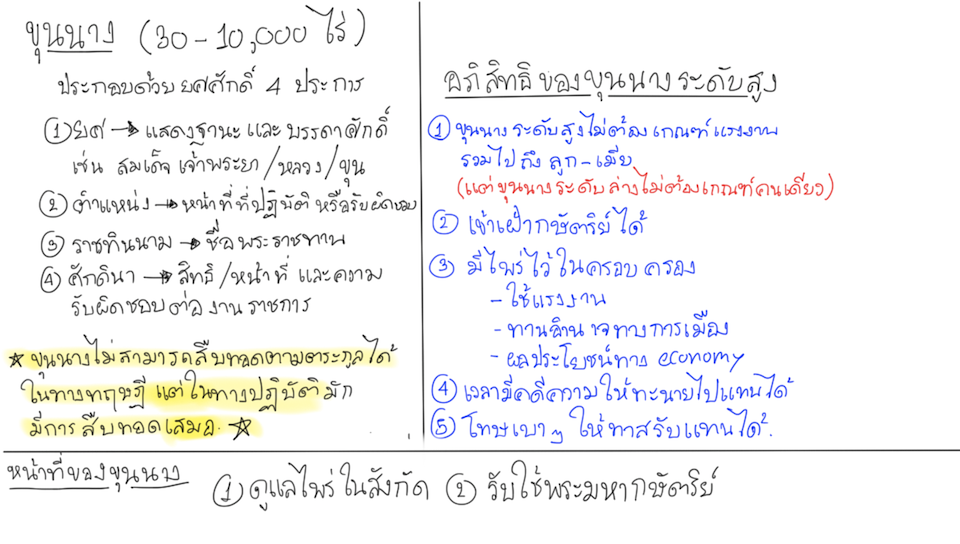 ขุนนาง (30-10,000 ไร่)
ประกอบด้วย ยศศักดิ์ 4 ประการ
① ยศ → แสดงฐานะ และ บรรดาศักดิ์
เช่น สมเด็จ เจ้าพระยา /หลวง /ขุน
② ตำแหน่ง → หน้าที่ที่ปฏิบัติ หรือรับผิดชอบ
③ ราชทินนาม → ชื่อพระราชทาน
④ ศักดินา → สิทธิ /หน้าที่ และความ
รับผิดชอบต่องานราชการ
☆ ขุนนางไม่สามารถสืบทอดตามตระกูลได้
ในทางทฤษฎี แต่ในทางปฏิบัติมัก
มีการสืบทอดเสมอ. ☆
อภิสิทธิ์ของขุนนางระดับสูง
① ขุนนางระดับสูงไม่ต้องเกณฑ์แรงงาน
รวมไปถึง ลูก-เมีย
(แต่ขุนนางระดับล่างไม่ต้องเกณฑ์คนเดียว)
② เข้าเฝ้ากษัตริย์ได้
③ มีไพร่ไว้ในครอบครอง
- ใช้แรงงาน
- ทานอำนาจทางการเมือง
- ผลประโยชน์ทาง economy
④ เวลามีคดีความให้ทะนายไปแทนได้
⑤ โทษเบาๆ ให้ทาสรับแทนได้.
หน้าที่ของขุนนาง
① ดูแลไพร่ในสังกัด ② รับใช้พระมหากษัตริย์